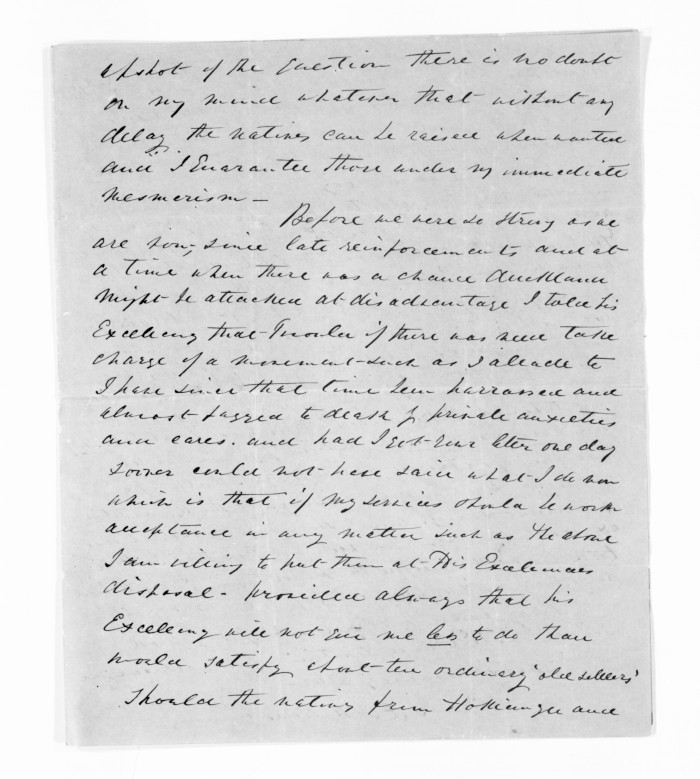 upshot of the question there is no doubt
on my mind whatever that without any
delay the natives can be raised when wanted
and I Guarantee those under my immediate
Mesmerism —
Before we were so strong as we
are now, since late reinforcements and at
a time when there was a chance Auckland
might be attacked at disadvantage I told his
Excellency that I would if there was need take
charge of a movement such as I allude to
I have since that time been harrassed and
almost fagged to death by private anxieties
and cares. and had I got your letter one day
sooner could not have said what I do now
which is that if my services should be worth
acceptance in any matter such as the above
I am willing to put them at His Excellencies
disposal - provided always that his
Excellency will not give me less to do than
would satisfy about ten ordinary "old settlers"
Should the natives from Hokianga and